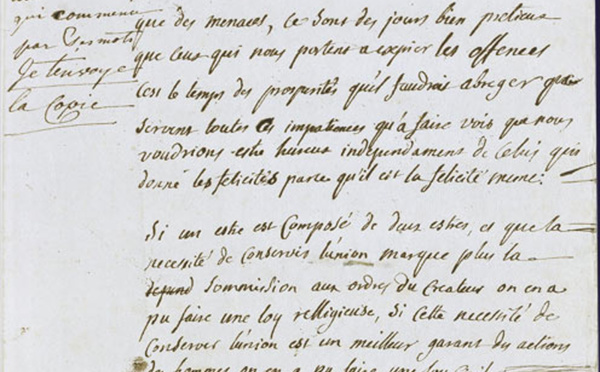 qui commence
par ces mots
Je t'envoye
la Copie
que des menaces, ce sont des jours bien pretieux
que ceux qui nous portent a expier les offences
C'est le temps des prosperités qu'il faudroit abreger que
servent toutes ces impatiences qu'à faire voir que nous
voudrions estre heureux independament de Celuy qui
donne les felicités parce qu'il est la felicité meme.
Si un estre est Composé de deux estres, et que la
necessité de Conserver l'union marque plus la
soumission aux ordres du Createur on en a
pu faire une loy relligieuse, Si cette necessité de
Conserver l'union est un meilleur garant des actions
des hommes on en a pu faire une loy Civile